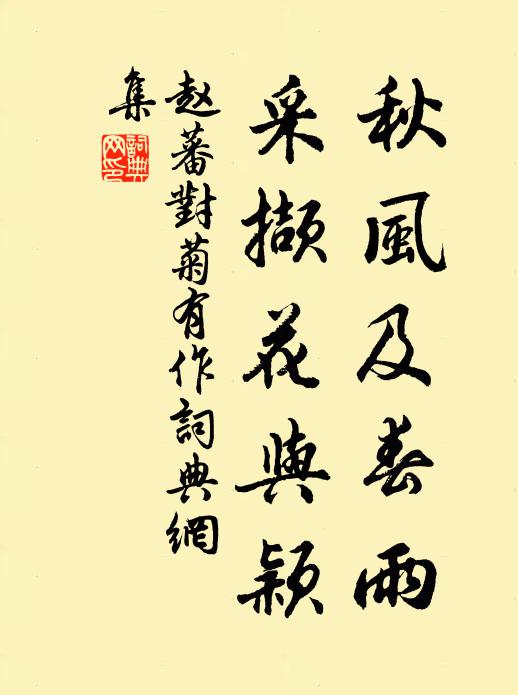 秋風及春雨
采擷花與穎
赵蕃對菊有作詞典網
集
詞典網印